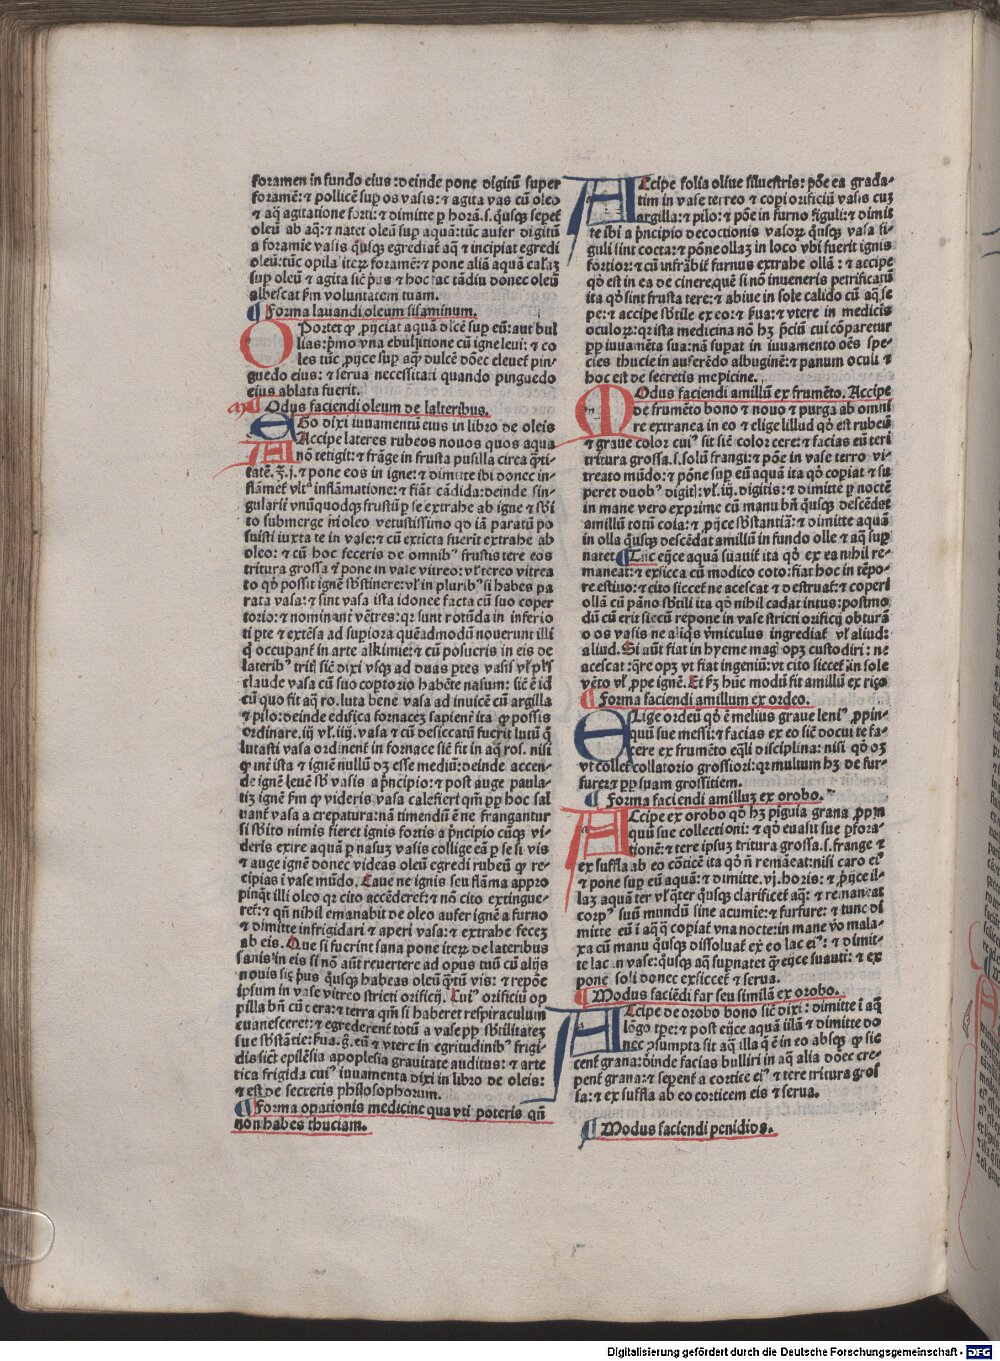 foramen in fundo eius: deinde pone digitū super
foramē: ⁊ pollicē sup os vasis: ⁊ agita vas cū oleo
⁊ aq̄ agitatione forti: ⁊ dimitte p horā.s. qͦusqꝫ sepet̄
oleū ab aq̄: ⁊ natet oleū sup aquā: tūc aufer digitū
a foramīe vasis qͦusqꝫ egrediat̄ aq̄ ⁊ incipiat egredi
oleū: tūc opila iteꝝ foramē: ⁊ pone aliā aquā calaꝫ
sup oleū ⁊ agita sic̄ pͥus ⁊ hoc fac tādiu donec oleū
albescat s̄m voluntatem tuam.
¶ Forma lauandi oleum sisaminum.
OPortet ꝙ ꝓijciat aquā dlcē sup eū: aut bul
lias: pͥmo vna ebulitione cū igne leui: ⁊ co
les tūc ꝓijce sup aqͣ dulcē dōec eleuet̄ pin⸗
guedo eius: ⁊ serua necessitati quando pinguedo
eius ablata fuerit.
¶ Modus faciendi oleum de lateribus.
EGo dixi iuuamentū eius in libro de oleis
Accipe lateres rubeos nouos quos aqua
nō tetigit: ⁊ frāge in frusta pusilla circa qͣti⸗
tatē. ʒ. j. ⁊ pone eos in igne: ⁊ dimitte ibi donec in⸗
flāmet̄ vltͣ inflāmatione: ⁊ fiāt cādida: deinde sin⸗
gulariī vnūquodqꝫ frustū p se extrahe ab igne ⁊ sb̄i
to submerge in oleo vetustissimo qd̄ iā paratū po
suisti iuxta te in vase: ⁊ cū exticta fuerit extrahe ab
oleo: ⁊ cū hoc feceris de omnibꝰ frustis tere eos
tritura grossa ⁊ pone in vase vitreo: vl̄ tereo vitrea
to qd̄ possit ignē sb̄stinere: vl̄ in pluribꝰ si habes pa
rata vasa: ⁊ sint vasa ista idonee facta cū suo coper
torio: ⁊ nominant̄ vētres: qꝛ sunt rotūda in inferio
ti pte ⁊ extēsa ad supiora quēadmodū nouerunt illi
q̄ occupant̄ in arte alkimie: ⁊ cū posueris in eis de
lateribꝰ tritꝭ sic̄ dixi vsqꝫ ad duas ptes vasis vl̄ pl̄s
claude vasa cū suo coptorio habēte nasum: sic̄ ē id
cū quo fit aq̄ ro. luta bene vasa ad inuicē cū argilla
⁊ pilo: deinde edifica fornaceꝫ sapient̄ ita ꝙ possis
ordinare. iij vl̄. iiij. vasa ⁊ cū desiccatū fuerit lutū q̄
lutasti vasa ordinent̄ in fornace sic̄ fit in aq̄ ros. nisi
ꝙ int̄ ista ⁊ ignē nullū dꝫ esse mediū: deinde accen⸗
de ignē leuē sb̄ vasis a pͥncipio: ⁊ post auge paula⸗
tiꝫ ignē s̄m ꝙ videris vasa calefieri qm̄ pp hoc sal
uant̄ vasa a crepatura: nā timendū ē ne frangantur
si sb̄ito nimis fieret ignis fortis a pͥncipio cūqꝫ vi⸗
deris exire aquā p nasuꝫ vasis collige eā p se si vis
⁊ auge ignē donec videas oleū egredi rubeū ꝙ re⸗
cipias ī vase mūdo. Caue ne ignis seu flāma appro
pinqͣt illi oleo qꝛ cito accēderet̄: ⁊ nō cito extingue⸗
ret̄: ⁊ qn̄ nihil emanabit de oleo aufer ignē a furno
⁊ dimitte infrigidari ⁊ aperi vasa: ⁊ extrahe feceꝫ
ab eis. Que si fuerint sana pone iteꝝ de lateribus
sanis in eis si nō aūt reuertere ad opus tuū cū alijs
nouis sic̄ pͥus qͦusqꝫ habeas oleū qͣtū vis: ⁊ repōe
ipsum in vase vitreo stricti orificij. Cuiꝰ orificiū op
pilla bn̄ cū cera: ⁊ terra qm̄ si haberet respiraculum
euanesceret: ⁊ egrederent̄ totū a vase pp sb̄tilitateꝫ
sue sb̄stātie: s̄ua. g. eū ⁊ vtere in egritudinibꝰ frigi⸗
dis sic̄t epilēsia apoplesia grauitate auditus: ⁊ arte
tica frigida cuiꝰ iuuamenta dixi in libro de oleis:
⁊ est de secretis philosophorum.
¶ Forma opationis medicine qua vti poteris qn̄
non habes thuciam.
ACcipe folia oliue siluestris: pōe ea grada⸗
tim in vase terreo ⁊ copi orificiū vasis cuꝫ
argilla: ⁊ pilo: ⁊ pōe in furno figuli: ⁊ dimit
te ibi a pͥncipio decoctionis vasoꝝ qͦusqꝫ vasa fi⸗
guli sint cocta: ⁊ pōne ollaꝫ in loco vbi fuerit ignis
fortior: ⁊ cū infrābit̄ furnus extrahe ollā: ⁊ accipe
qd̄ est in ea de cinere, quē si nō inueneris petrificatū
ita qd̄ sint frusta tere: ⁊ ablue in sole calido cū aq̄ se
pe: ⁊ accipe sb̄tile ex eo: ⁊ s̄ua: ⁊ vtere in medicis
oculoꝝ: qꝛ ista medicina nō hꝫ pͥciū cui cōparetur
pp iuuamēta sua: nā supat in iuuamento oēs spe⸗
cies thucie in auferēdo albuginē: ⁊ panum oculi ⁊
hoc est de secretis medicine.
MOdus faciendi amillū ex frumēto. Accipe
de frumēto bono ⁊ nouo ⁊ purga ab omni
re extranea in eo ⁊ elige illud qd̄ est rubeū
⁊ graue color cuiꝰ sit sic̄ color cere: ⁊ facias eū teri
tritura grossa.s. solū frangi: ⁊ pōe in vase terro vi⸗
treato mūdo: ⁊ pōne sup eū aquā ita qd̄ copiat ⁊ su
peret duobꝰ digitꝭ: vl̄. iij. digitis: ⁊ dimitte p noctē
in mane vero exprime cū manu bn̄ qͦusqꝫ descēdat
amillū totū cola: ⁊ ꝓijce sb̄stantiā: ⁊ dimitte aquā
in olla qͦusqꝫ descēdat amillū in fundo olle ⁊ aq̄ sup
natet ¶ Tūc eijce aquā suauit̄ ita qd̄ ex ea nihil re⸗
maneat: ⁊ exsicca cū modico coto: fiat hoc in tēpo⸗
re estiuo: ⁊ cito siccet̄ ne acescat ⁊ destruat̄: ⁊ coperi
ollā cū pāno sb̄tili ita qd̄ nihil cadat intus: postmo
dū cū erit siccū repone in vase stricti orificij obturā
o os vasis ne aliqͥs v̄miculus ingrediat̄ vl̄ aliud:
aliud. Si aūt fiat in hyeme magꝭ opꝫ custodiri: ne
acescat: qͣre opꝫ vt fiat ingeniū: vt cito siccet̄ in sole
vēto vl̄ prope ignē. Et s̄m hūc modū fit amillū ex riço
¶ Forma faciendi amillum ex ordeo.
ELige ordeū qd̄ ē melius graue leniꝰ ꝓpin⸗
quū sue messi: ⁊ facias ex eo sic̄ docui te fa⸗
cere ex frumēto eq̄li disciplina: nisi qd̄ oꝫ
vt collet̄ collatorio grossiori: qꝛ multum hꝫ de fur⸗
fure: ⁊ pp suam grossitiem.
¶ Forma faciendi amilluꝫ ex orobo.
ACcipe ex orobo qd̄ hꝫ pīguia grana ꝓpin
quū sue collectioni: ⁊ qd̄ euasit sue pfora⸗
tionē: ⁊ tere ipsuꝫ tritura grossa.s. frange ⁊
ex suffla ab eo cōticē ita qd̄ n̄ remāeat: nisi caro eiꝰ
⁊ pone sup eū aquā: ⁊ dimitte. vj. horis: ⁊ ꝓijce il⸗
laꝫ aquā ter vl̄ qͣter qͦusqꝫ clarificet̄ aq̄: ⁊ remaneat
corpꝰ suū mundū sine acumīe: ⁊ furfure: ⁊ tunc di
mitte eū ī aq̄ q̄ copiat̄ vna nocte: in mane vo mala⸗
xa cū manu qͦusqꝫ dissoluat̄ ex eo lac eiꝰ: ⁊ dimit⸗
te lac in vase: qͦusqꝫ aq̄ supnatet q̄ eijce suauit̄: ⁊ ex
pone soli donec exsiccet̄ ⁊ serua.
¶ Modus faciēdi far seu similā ex orobo.
ACcipe de orobo bono sic̄ dixi: dimitte ī aq̄
lōgo tpe: ⁊ post eijce aquā illā ⁊ dimitte do
nec ꝯsumpta sit aq̄ illa q̄ ē in eo absqꝫ ꝙ sic
cent̄ grana: dēinde facias bulliri in aq̄ alia dōec cre⸗
pent̄ grana: ⁊ sepent̄ a cortice eiꝰ ⁊ tere tritura gros
sa: ⁊ ex suffla ab eo corticem eis ⁊ serua.
¶ Modus faciendi penidios.
Digitalisierung gefördert durch die Deutsche Forschungsgemeinschaft - DFG